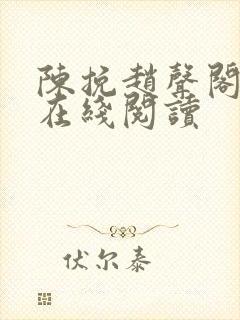 陳挩趙聲閣
在綫閱讀
伏尔泰